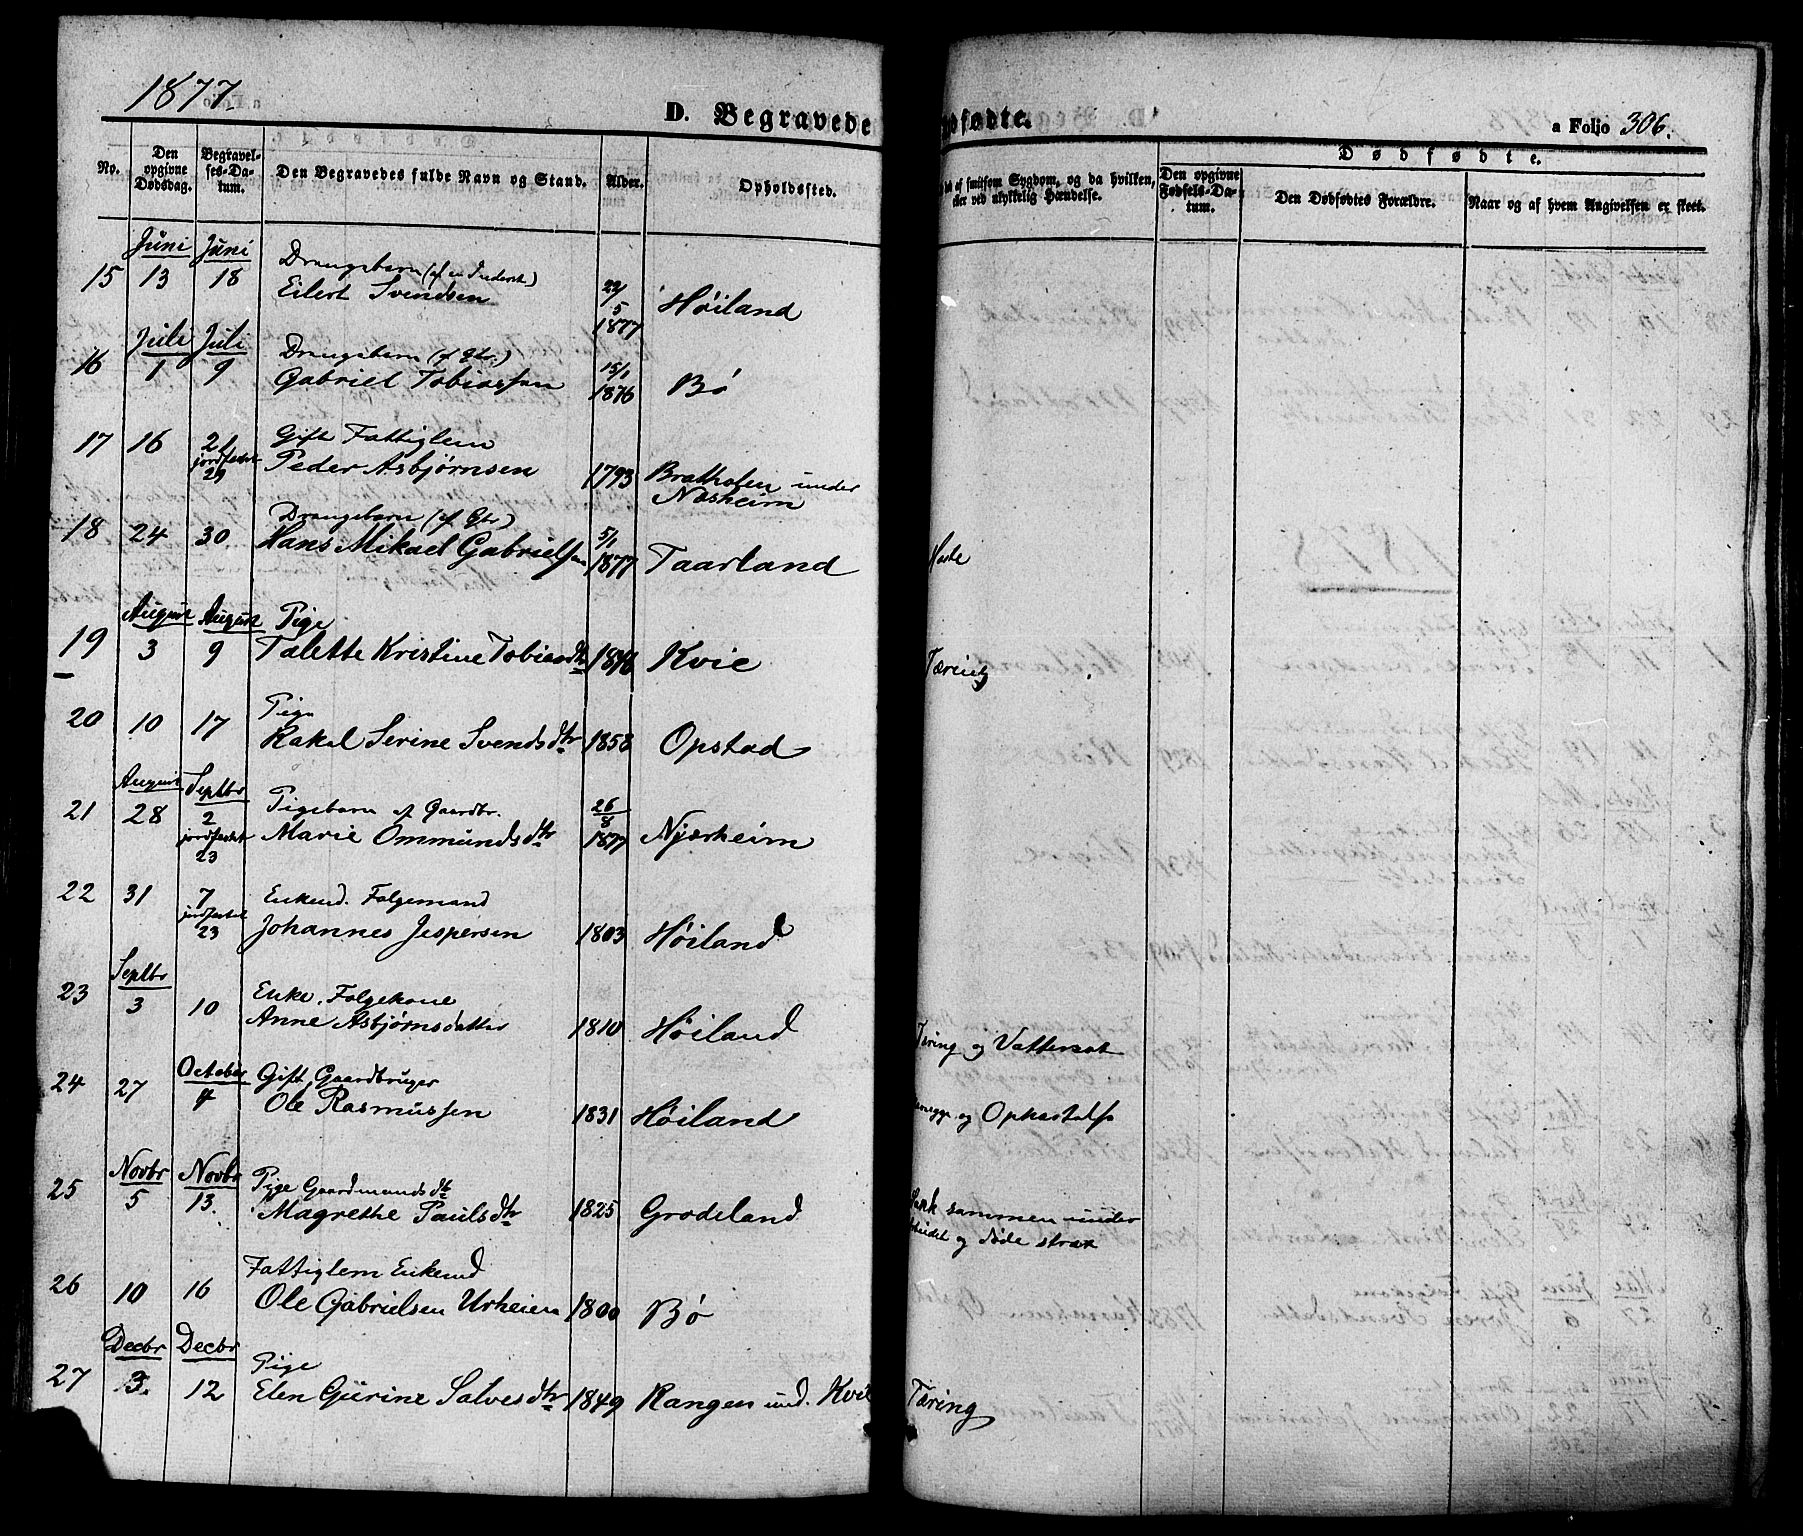 1877.
D. Begravede
dfødte.
a Folio 306.
No.
Den opgivne Dødsdag.
Begravelses-Datum.
Den Begravedes fulde Navn og Stand.
Alder.
Opholdssted.
af smitsom Sygdom, og da hvilken,
eller ved ulykkelig Hændelse.
Dødfødte.
Den opgivne Fødsels-Datum.
Den Dødfødtes Forældre.
Naar og af hvem Angivelsen er skeet.
Juni Juni
15 13 18 Drengebarn (af en Inderst)
Eilert Svendsen 22/5 1877 Høiland
Juli Juli
16 1 9 Drengebarn (af Gbr.)
Gabriel Tobiassen 15/1 1876 Bø
17 16 21 jordfæstet 29 Gift Fattiglem
Peder Asbjørnsen 1793 Brathofen under
Næsheim
18 24 30 Drengebarn (af Gbr)
Hans Mikael Gabrielsen 5/1 1877 Taarland
Hoste
August August
19 3 9 Pige
Talette Kristine Tobiasdtr 1846 Kvie
Tæring
20 10 17 Pige
Rakel Serine Svendsdtr 1858 Opstad
August Septbr
21 28 2 jordfæstet 23 Pigebarn af Gaardbr.
Marie Ommundsdtr 26/8 1877 Njærheim
22 31 7 jordfæstet 23 Enkemd. Folgemand
Johannes Jespersen 1803 Høiland
Septbr
23 3 10 Enke, Folgekone
Anne Asbjørnsdatter 1810 Høiland
Tæring og Vattersot
October
24 27 4 Gift Gaardbruger
Ole Rasmussen 1831 Høiland
og Opkastelse
Novbr Novbr
25 5 13. Pige Gaardmandsdtr
Magrethe Paulsdtr 1825 Grødeland
Sank sammen under
Arbeidet og døde strax
26 10 16 Fattiglem Enkemd
Ole Gabrielsen Urheien 1800 Bø
Decbr Decbr
27 3. 12 Pige
Elen Gurine Salvesdtr 1849 Rangen und. Kvie
Tæring